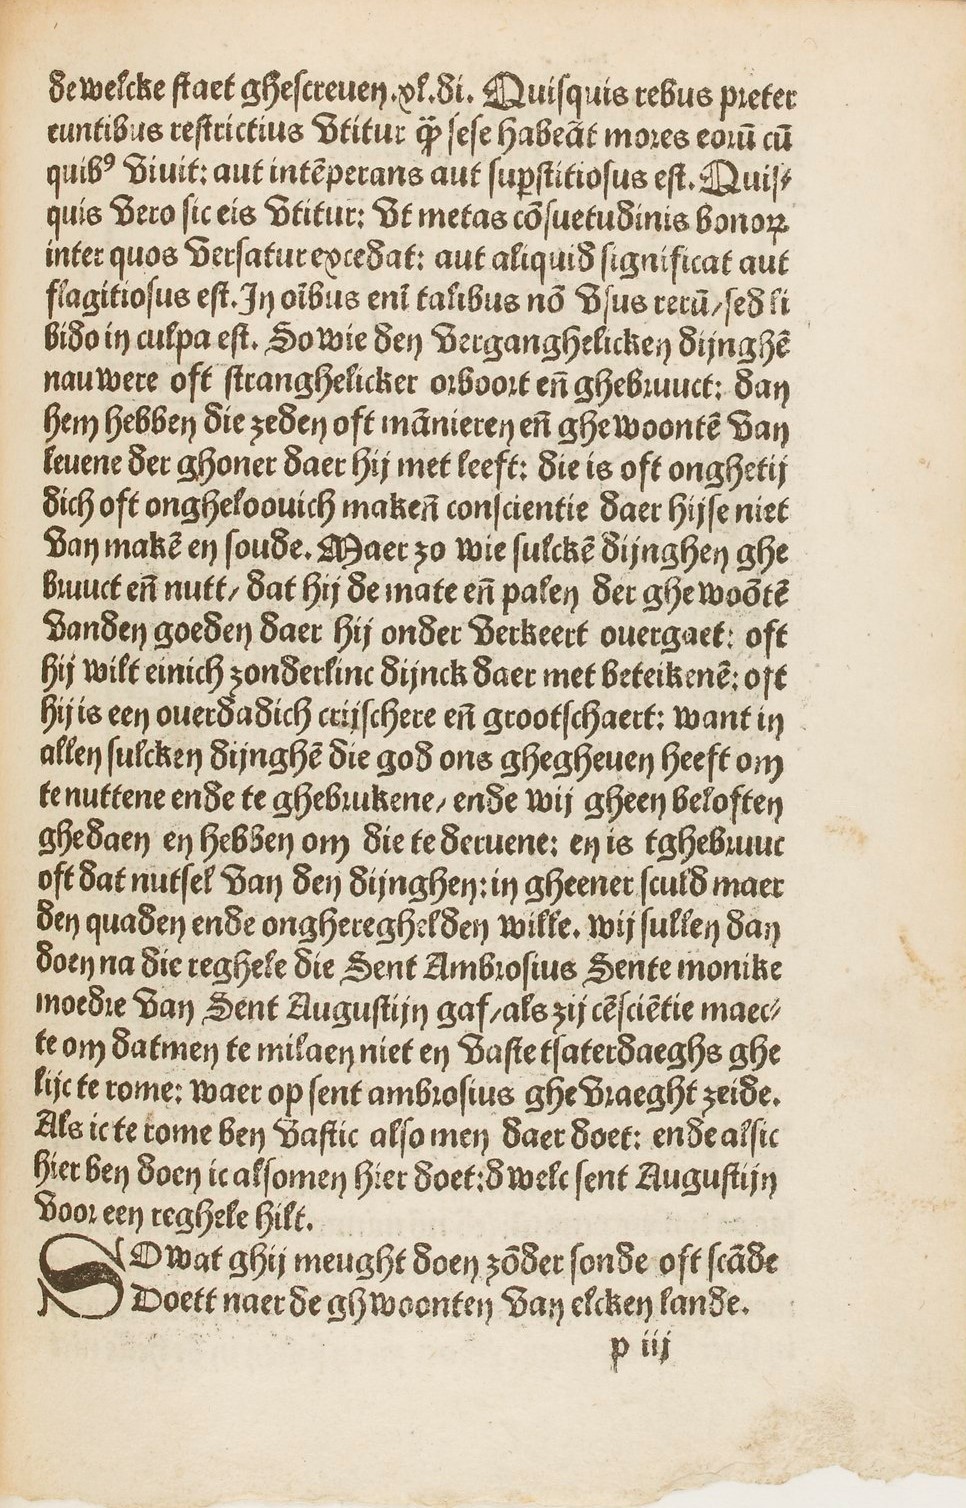 de welcke staet ghescreuen.xl.di. Quisquis rebus preter
euntibus restrictius vtitur q̄ȝ sese habeāt mores eorū cū
quibꝰ viuit: aut intēperans aut suꝑstitiosus est. Quis⸗
quis vero sic eis vtitur: vt metas cōsuetudinis bonoꝝ
inter quos versatur excedat: aut aliquid significat aut
flagitiosus est. In oībus enī talibus nō vsus rerū/sed li
bido in culpa est. So wie den verganghelicken dijnghē
nauwere oft stranghelicker orboort eñ ghebruuct: dan
hem hebben die zeden oft mānieren eñ ghewoontē van
leuene der ghoner daer hij met leeft: die is oft onghetij
dich oft ongheloouich makeñ conscientie daer hijse niet
van makē en soude. Maer zo wie sulckē dijnghen ghe
bruuct eñ nutt/ dat hij de mate eñ palen der ghewoōtē
vanden goeden daer hij onder verkeert ouergaet: oft
hij wilt einich zonderlinc dijnck daer met beteikenē: oft
hij is een ouerdadich crijschere eñ grootschaert: want in
allen sulcken dijnghē die god ons ghegheuen heeft om
te nuttene ende te ghebrukene/ ende wij gheen beloften
ghedaen en hebben om die te deruene: en is tghebruuc
oft dat nutsel van den dijnghen: in gheener sculd maer
den quaden ende onghereghelden wille. wij sullen dan
doen na die reghele die Sent Ambrosius Sente monike
moedre van Sent Augustijn gaf/als zij cēsciētie maec⸗
te om datmen te milaen niet en vaste tsaterdaeghs ghe
lijc te rome: waer op sent ambrosius ghevraeght zeide.
Als ic te rome ben vastic also men daer doet: ende alsic
hier ben doen ic alsomen hier doet:dwelc sent Augustijn
voor een reghele hilt.
SO wat ghij meught doen zōder sonde oft scāde
Doett naer de ghwoonten van elcken lande.
p iij